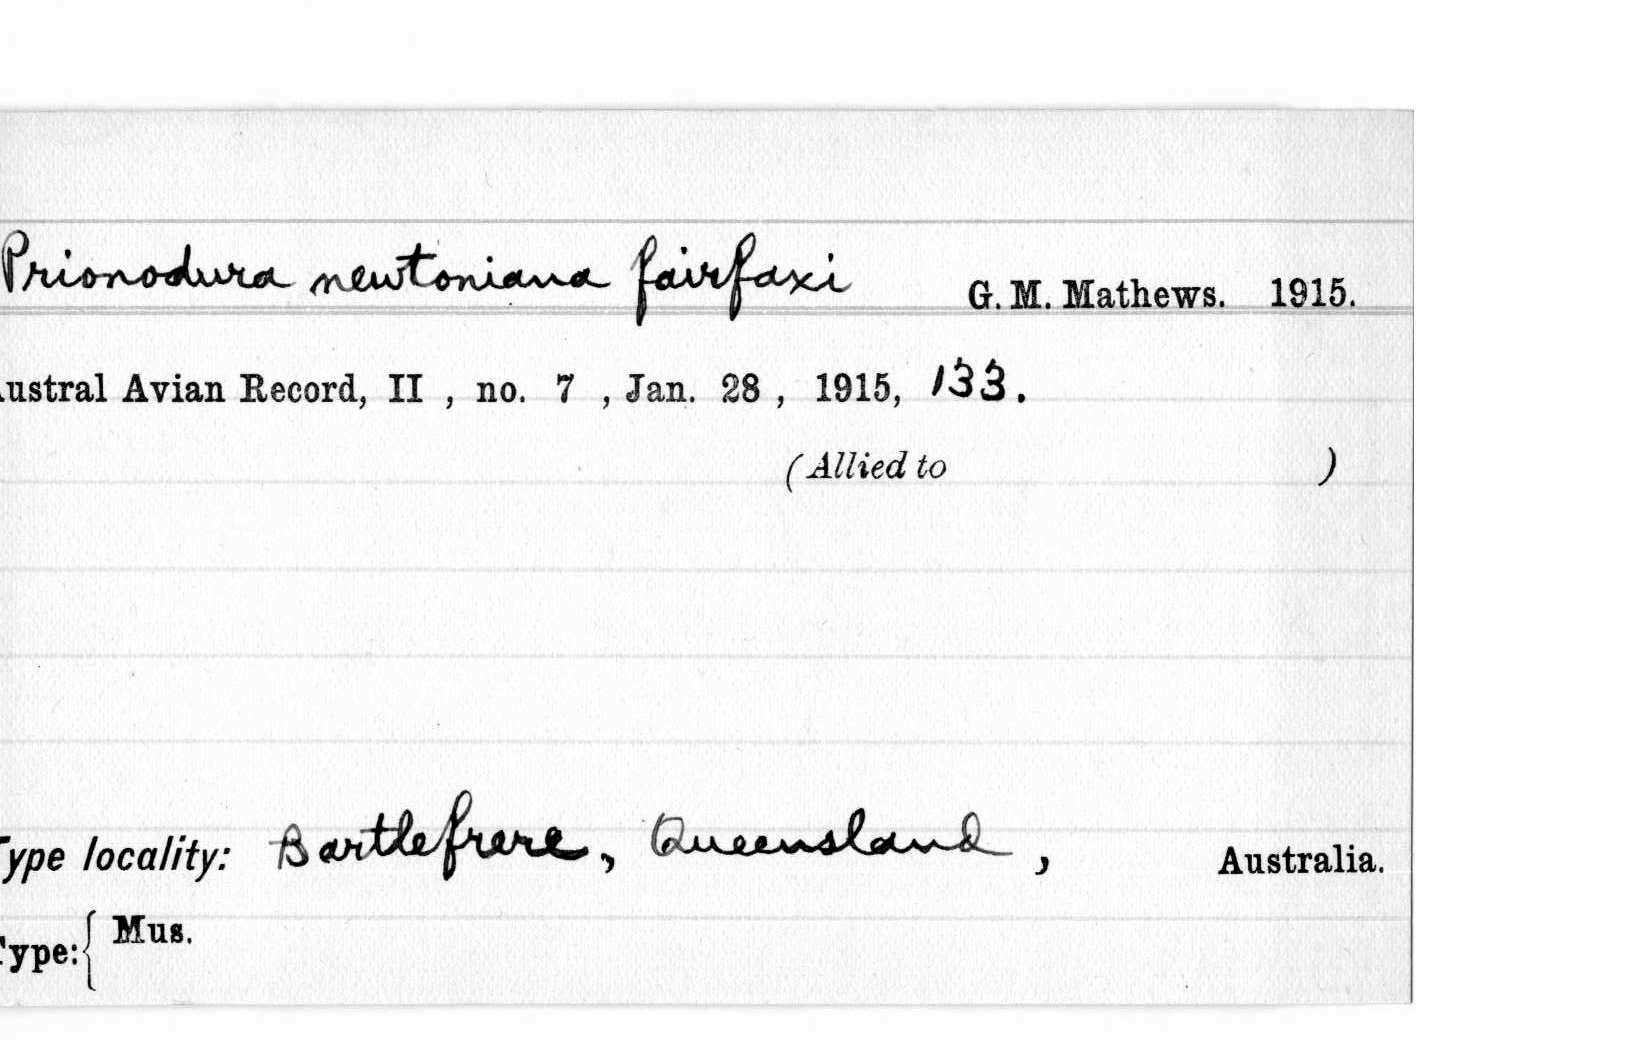 Prionodura newtoniana fairfaxi G. M. Mathews. 1915.
ustral Avian Record, II , no. 7 , Jan. 28 , 1915, 133.
(Allied to )
Type locality: Bartlefrere, Queensland , Australia.
Type: { Mus.